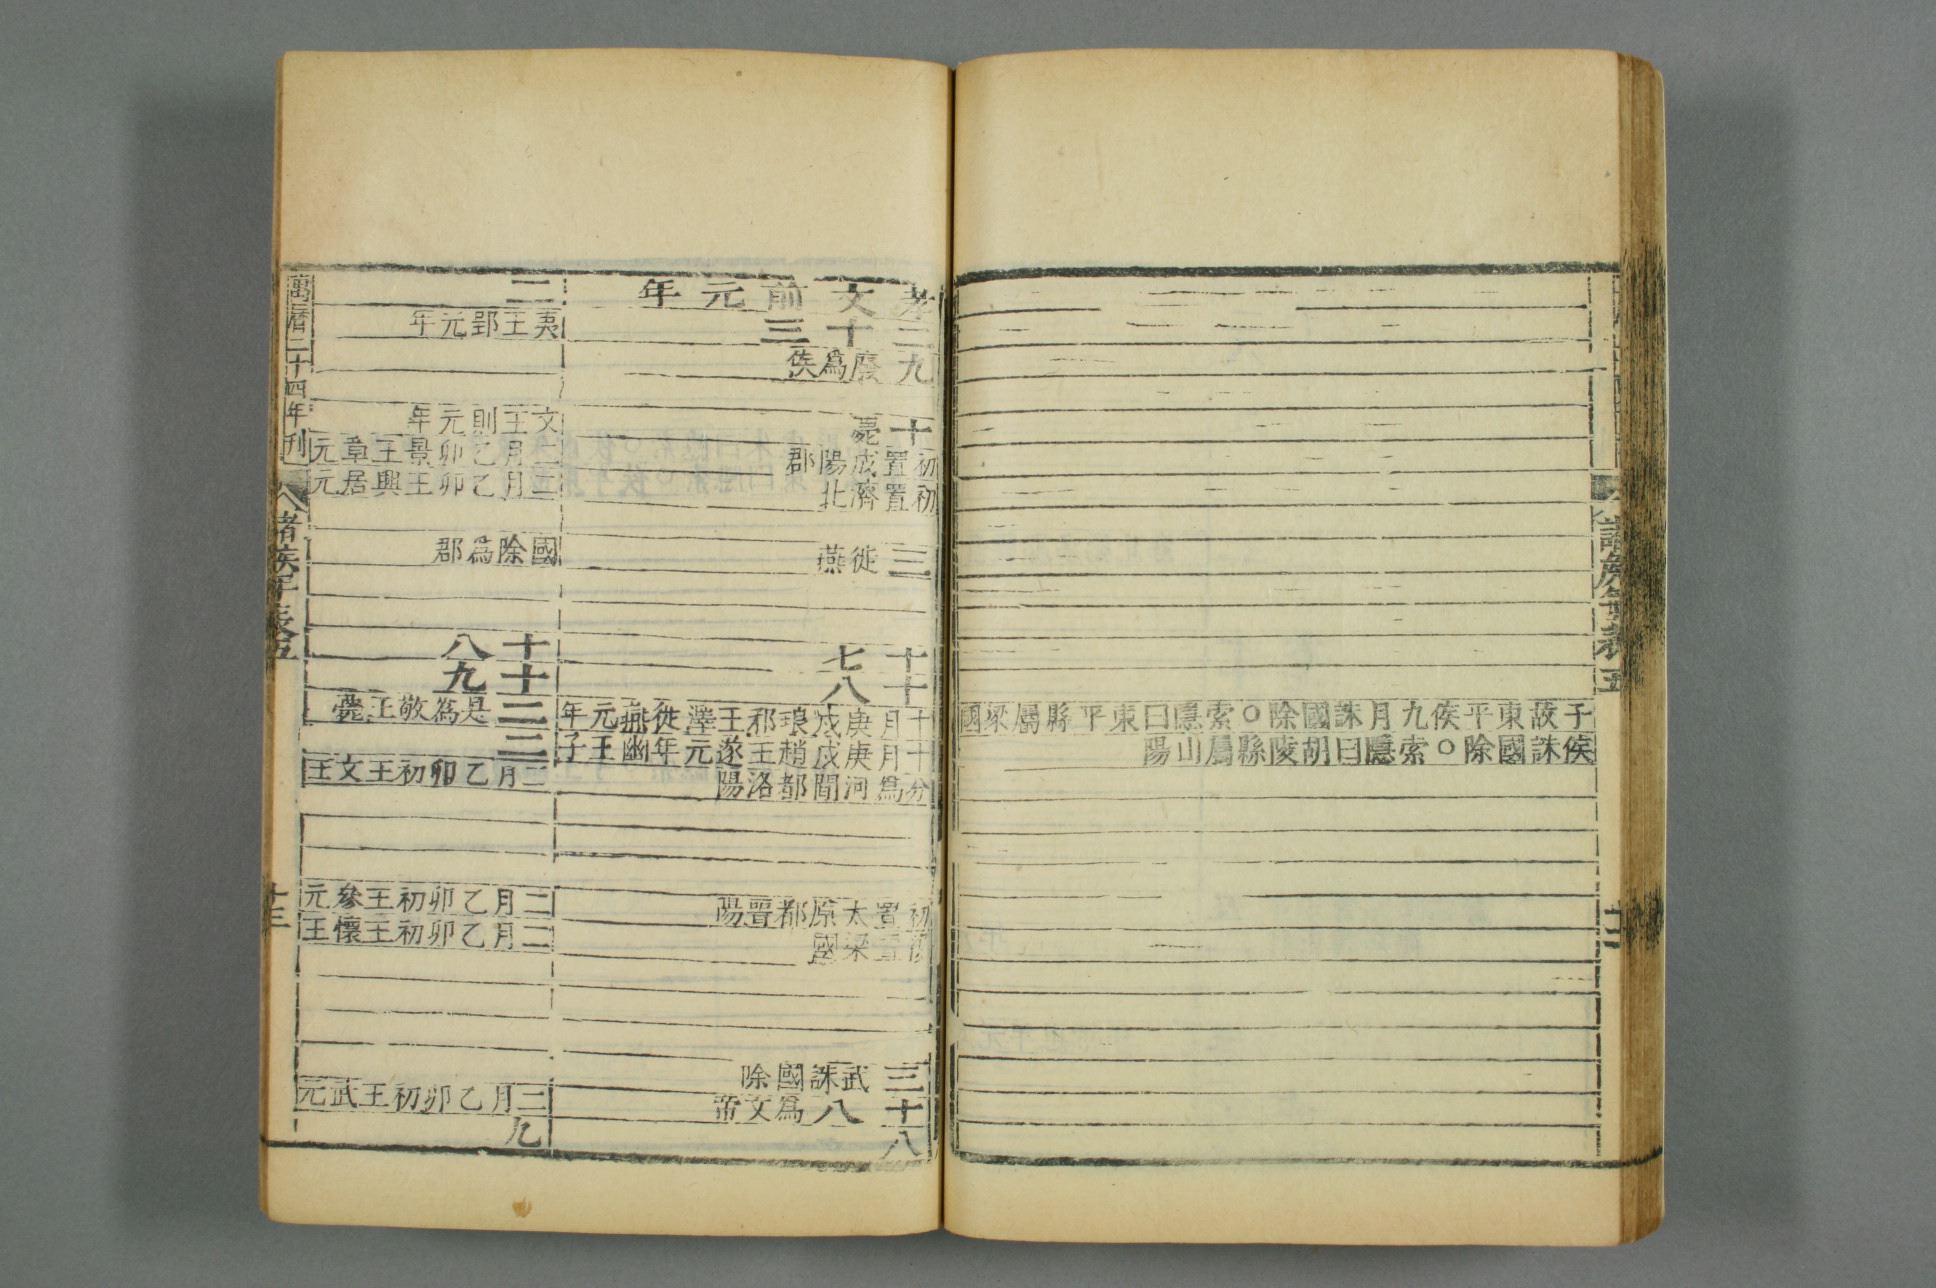 諸侯年表五
子故東平侯九月誅國除○索隱曰東平縣屬梁國
侯誅國除○索隱曰胡陵縣屬山陽
孝文前元年
二十三
九廢爲侯
十薨
初置成陽郡
初置濟北
三徙燕
十七
十八
十月庚戌琅邪王澤徙燕元年
十月庚戌趙王遂元年幽王子
分爲河間都洛陽
初置太原都晉陽
復置梁國
三武誅國除
十八爲文帝
八
二
夷王郢元年
文王則元年
二月乙卯景王章元
二月乙卯王興居元
國除爲郡
十八
十九
二是爲敬王薨
二
二月乙卯初王文王
二月乙卯初王參元
二月乙卯初王懷王
二月乙卯初王武元
九
萬曆二十四年刊
諸侯年表五
十三